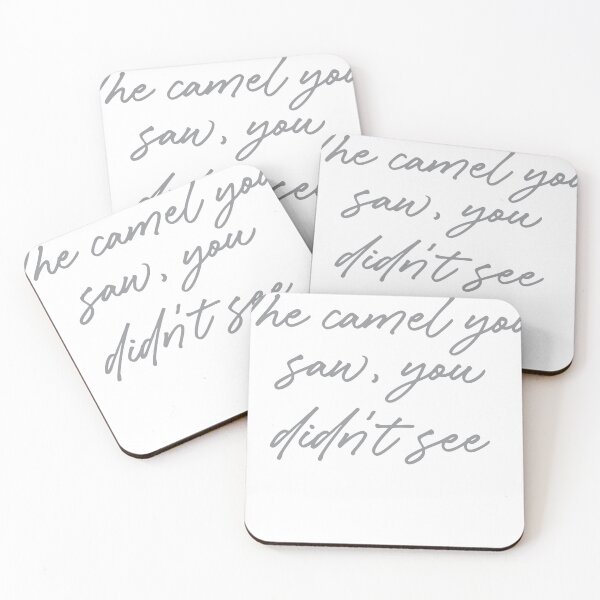 he camel you
saw, you
he camel you
saw, you
didn't see
he camel you
saw, you
didn't
he camel you
saw, you
didn't see